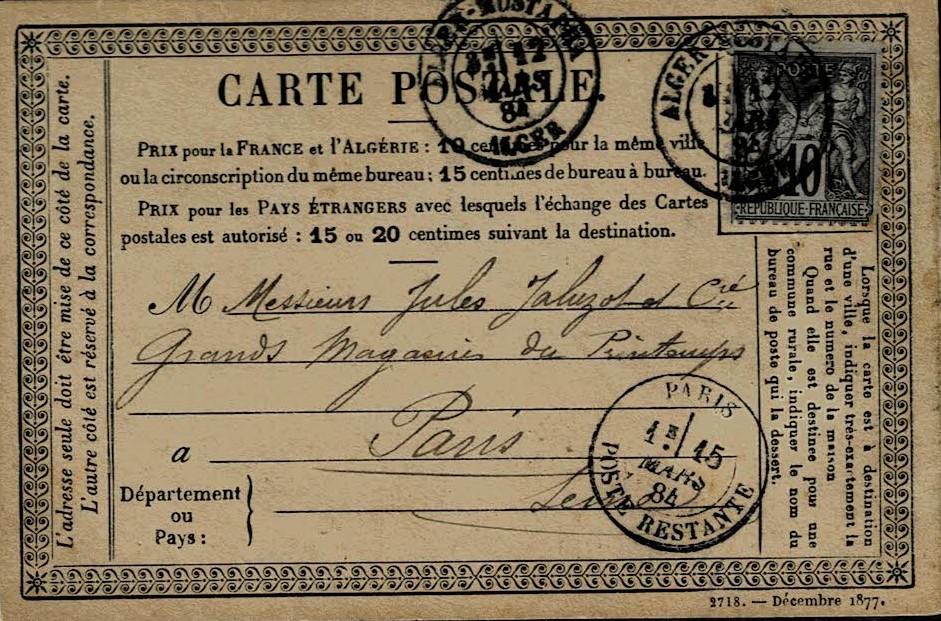 CARTE POSTALE.
PRIX pour la FRANCE et l'ALGÉRIE : 10 centimes pour la même ville
ou la circonscription du même bureau ; 15 centimes de bureau à bureau.
PRIX pour les PAYS ÉTRANGERS avec lesquels l'échange des Cartes
postales est autorisé : 15 ou 20 centimes suivant la destination.
M Messieurs Jules Jaluzot et Cie
Grands Magasins du Printemps
a Paris
Département
ou
Pays :
Seine
L'adresse seule doit être mise de ce côté de la carte.
L'autre côté est réservé à la correspondance.
Lorsque la carte est à destination
d'une ville, indiquer très-exactement la
rue et le numero de la maison
Quand elle est destinée pour une
commune rurale, indiquer le nom du
bureau de poste qui la dessert.
ALGER-MUSTAPHA
12
MARS
84
ALGER
ALGER
MARS
84
POSTE
10
RÉPUBLIQUE-FRANÇAISE
PARIS
15
MARS
84
POSTE RESTANTE
2718. — Décembre 1877.